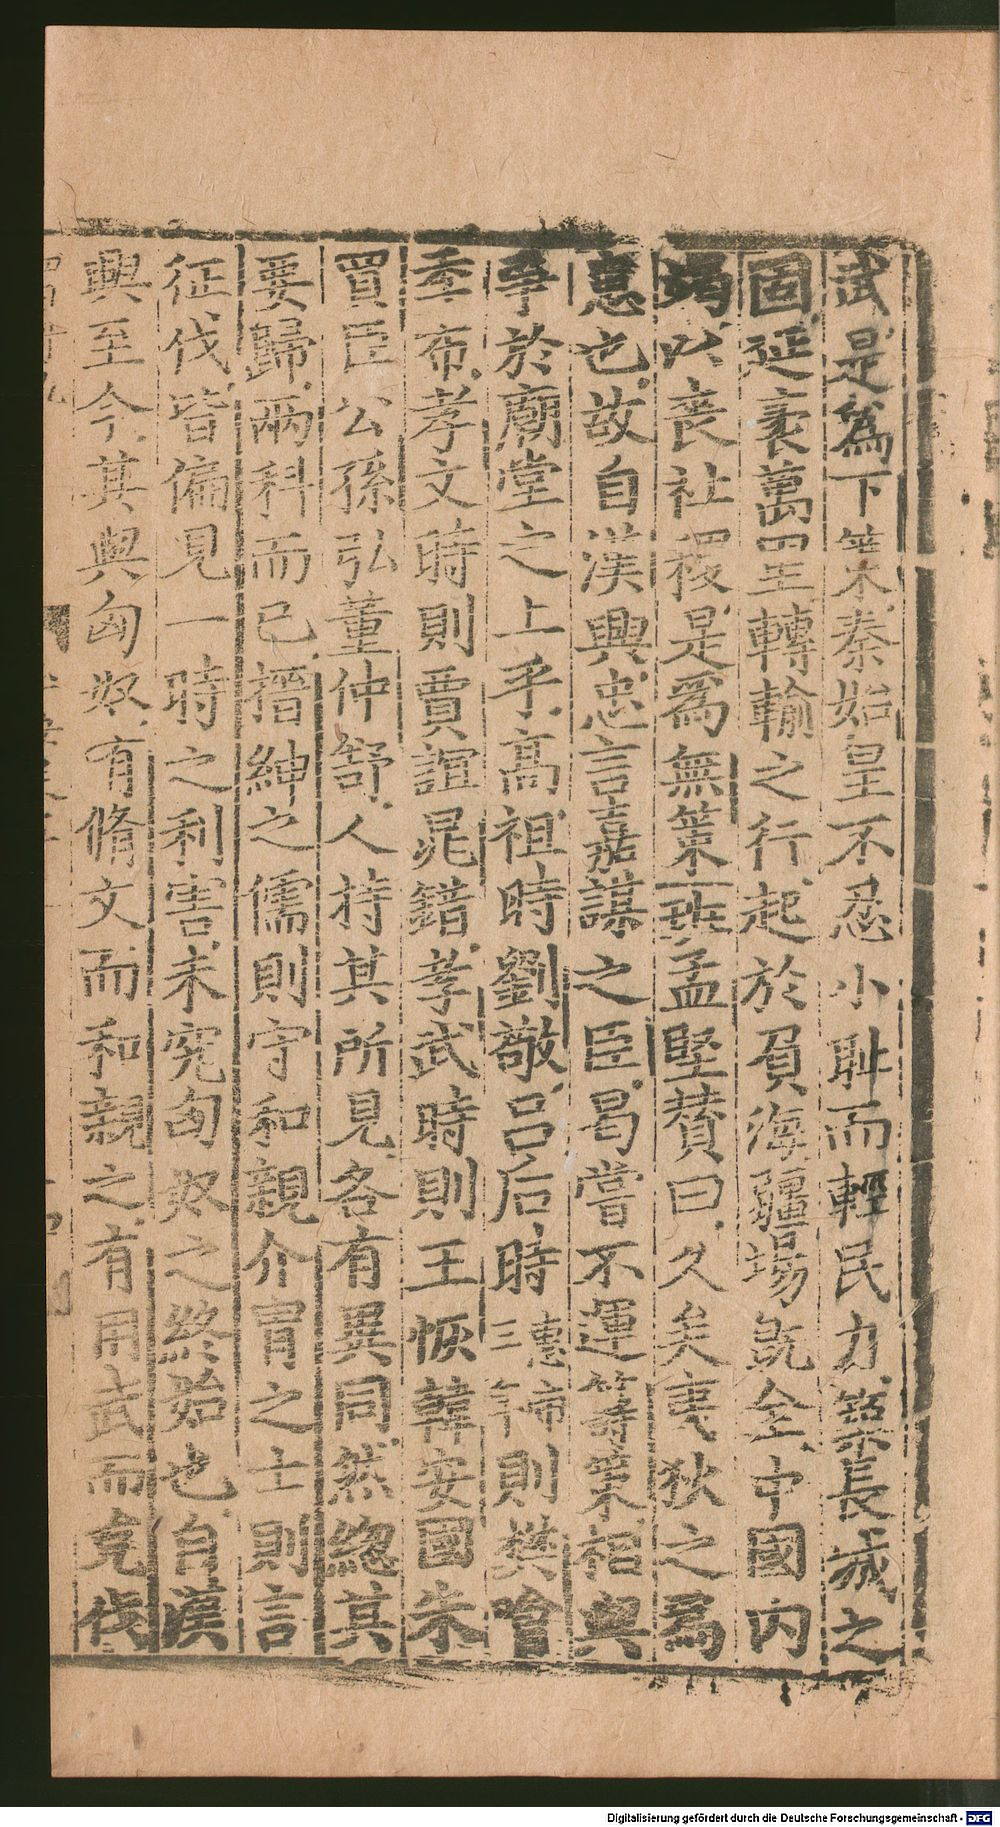 武是爲下策秦始皇不忍小耻而輕民力築長城之
固延袤萬里轉輸之行起於負海疆場既全中國内
竭以喪社稷是爲無策班孟堅賛曰久矣夷狄之爲
患也故自漢興忠言嘉謀之臣曷嘗不運籌策相與
爭於廟堂之上乎高祖時劉敬吕后時惠帝三年則樊噲
季布孝文時則賈誼晁錯孝武時則王恢韓安國朱
買臣公孫弘董仲舒人持其所見各有異同然緫其
要歸兩科而已搢紳之儒則守和親介冑之士則言
征伐皆偏見一時之利害未究匈奴之終始也自漢
興至今其與匈奴有脩文而和親之有用武而克伐
Digitalisierung gefördert durch die Deutsche Forschungsgemeinschaft - DFG